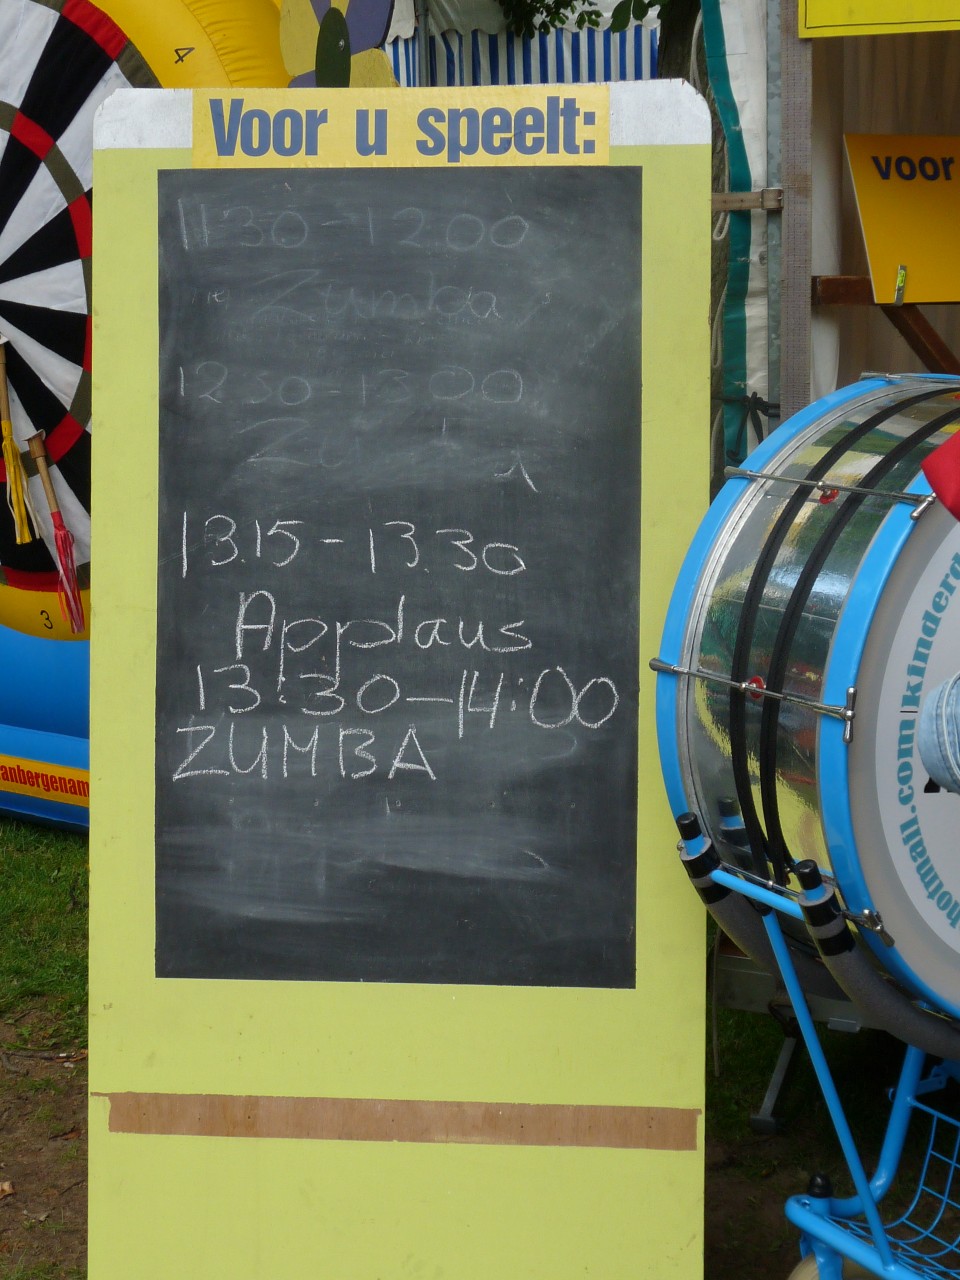 4
Voor u speelt:
voor
11 30 - 12.00
Zumba
12 30 - 13 00
13.15 - 13.30
Applaus
13:30 - 14:00
ZUMBA
3
hotmail.com | kinderd
anbergenam